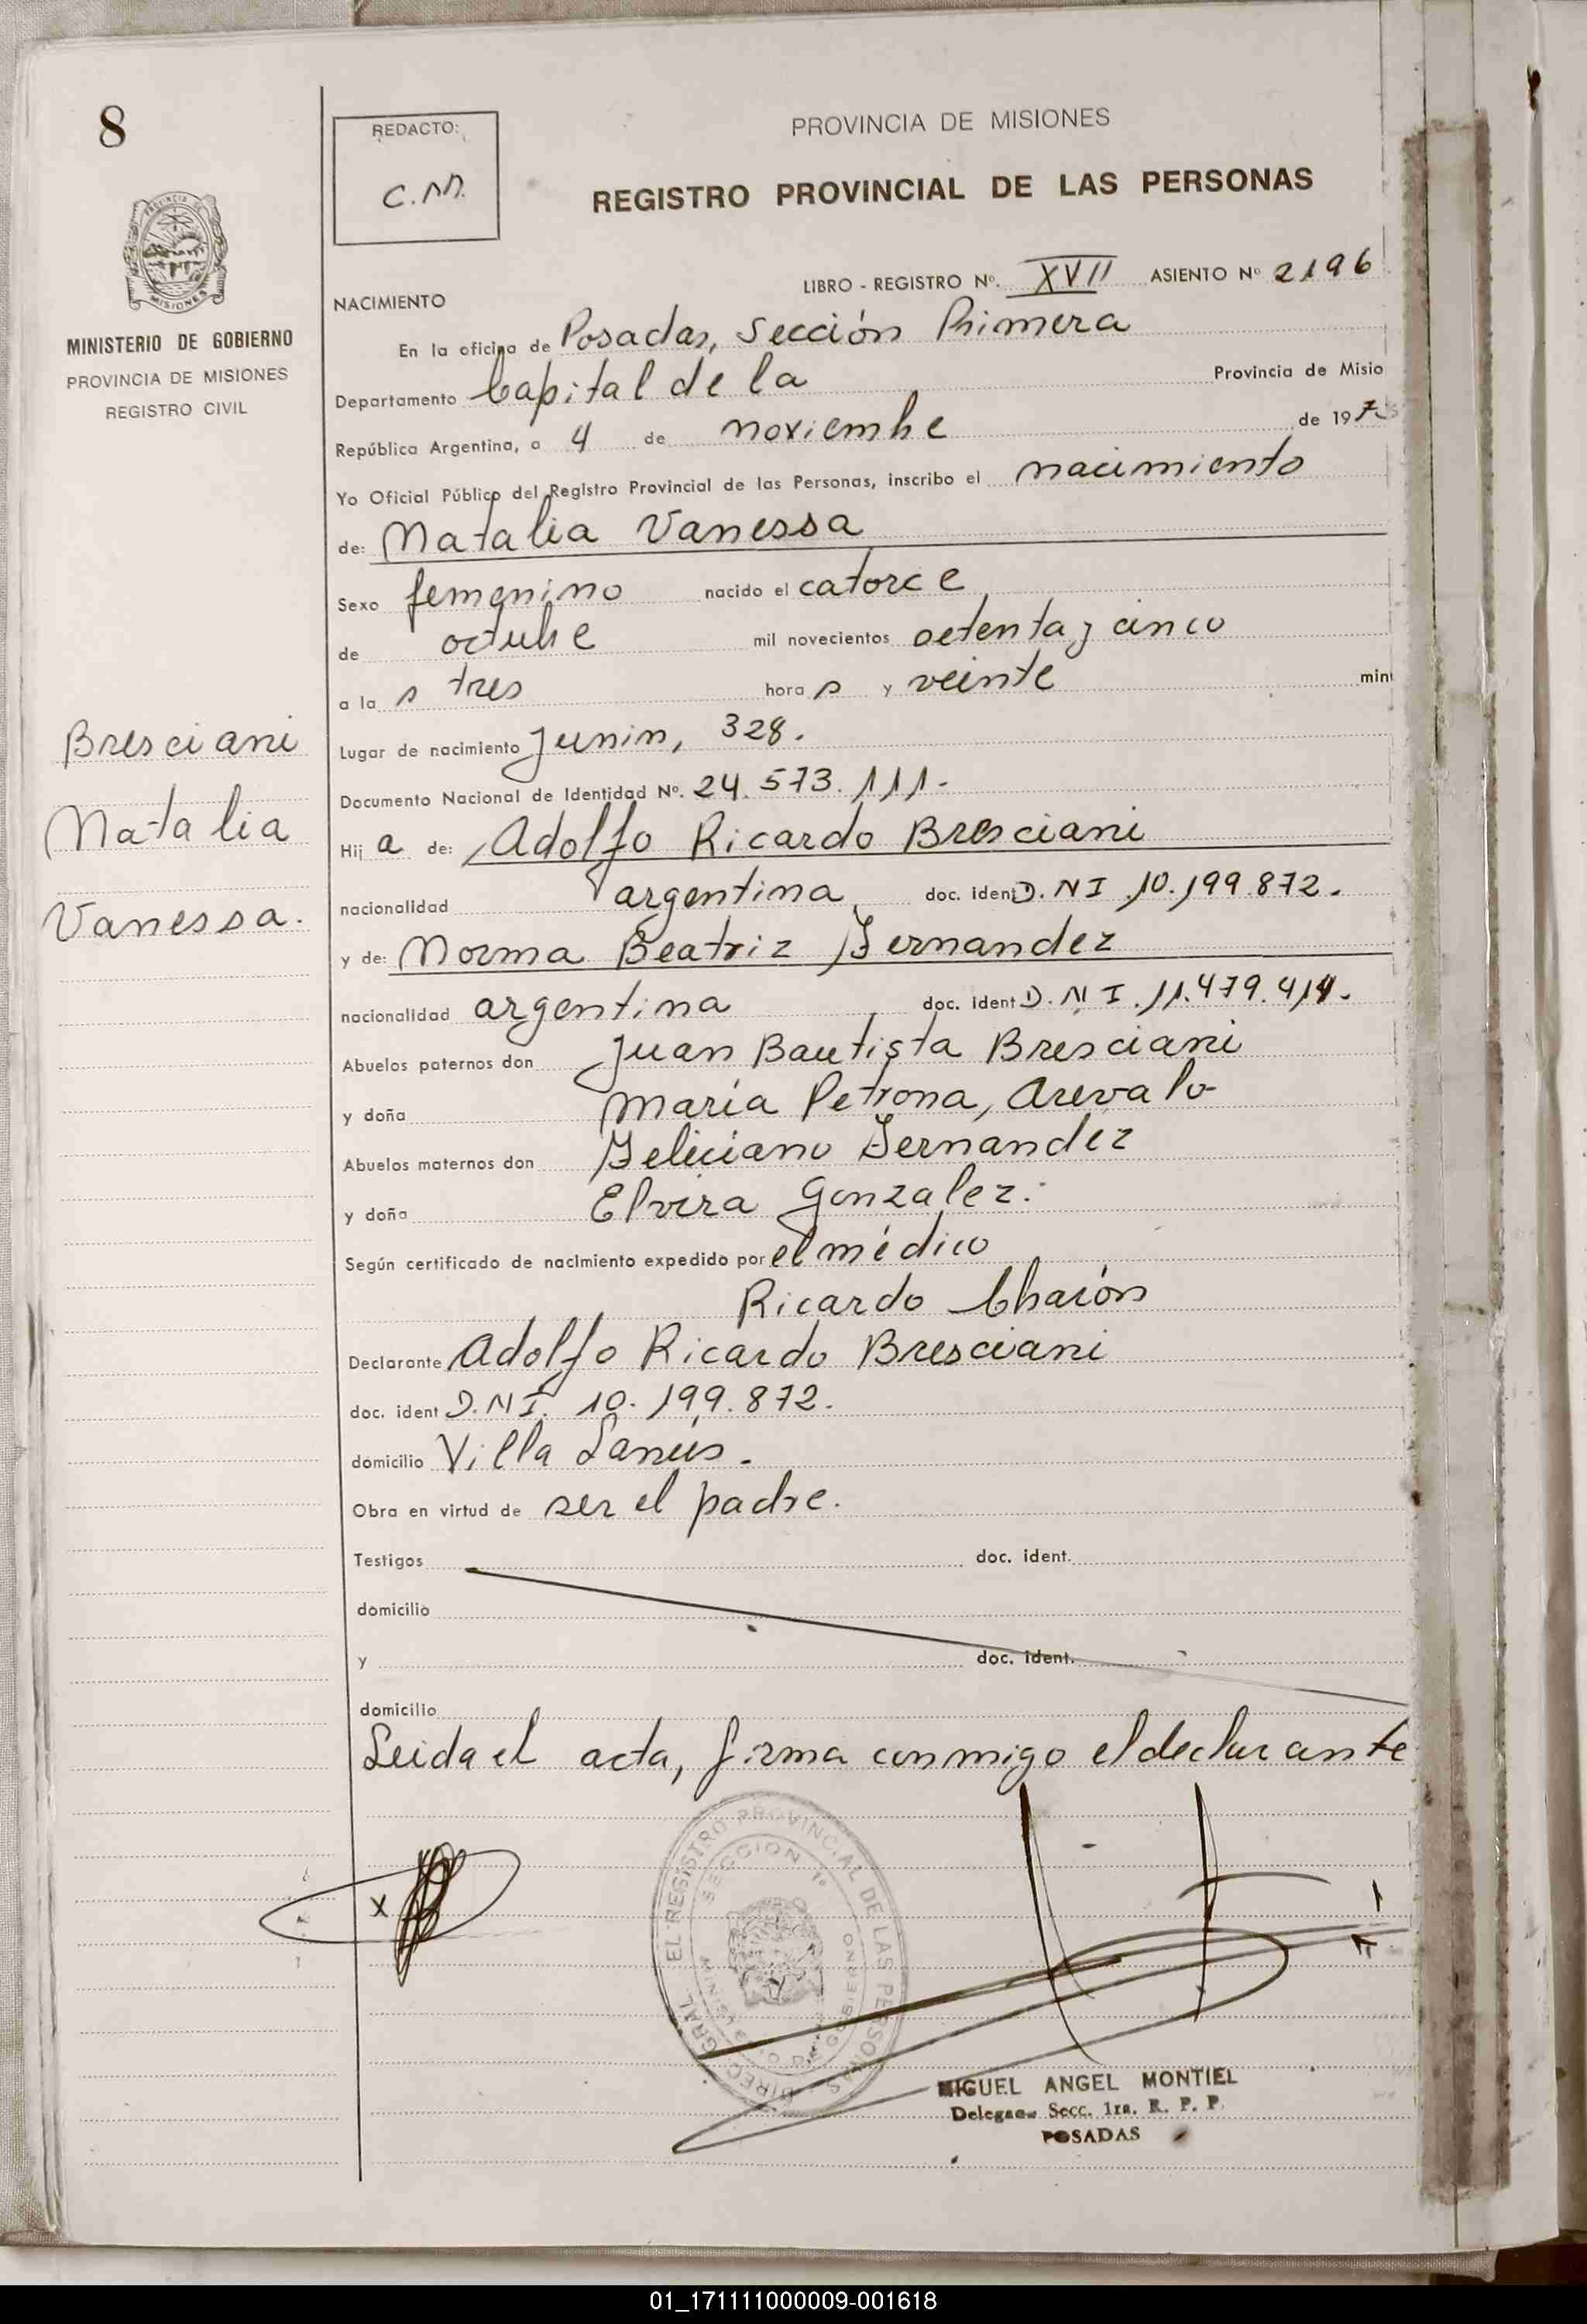 8
REDACTO:
C.M.
PROVINCIA DE MISIONES
REGISTRO PROVINCIAL DE LAS PERSONAS
MINISTERIO DE GOBIERNO
PROVINCIA DE MISIONES
REGISTRO CIVIL
LIBRO - REGISTRO Nº. XVII ASIENTO Nº 2196
NACIMIENTO
En la oficina de Posadas, Sección Primera
Departamento Capital de la Provincia de Misio
República Argentina, a 4 de noviembre de 197
Yo Oficial Público del Registro Provincial de las Personas, inscribo el nacimiento
de: Natalia Vanessa
Sexo femenino nacido el catorce
de octubre mil novecientos setenta y cinco
a la s tres hora s y veinte min
Lugar de nacimiento Junin, 328.
Documento Nacional de Identidad Nº. 24.573.111.-
Hij a de: Adolfo Ricardo Bresciani
nacionalidad argentina, doc. iden D.NI 10.199.872.
y de: Norma Beatriz Fernandez
nacionalidad argentina doc. ident D.N I. 11.479.414.
Abuelos paternos don Juan Bautista Bresciani
y doña María Petrona, Arevalo
Abuelos maternos don Feliciano Fernandez
y doña Elvira Gonzalez.
Según certificado de nacimiento expedido por el médico
Ricardo
Declarante Adolfo Ricardo Bresciani
doc. ident D.NI. 10.199.872.
domicilio Villa Lanús.
Obra en virtud de ser el padre.
Testigos doc. ident.
domicilio
y doc. ident.
domicilio
Leida el acta, firma conmigo el declarante
Bresciani
Natalia
Vanessa.
x
DIREC. GRAL. EL REGISTRO PROVINCIAL DE LAS PERSONAS
SECCION 1ª
MINISTERIO DE GOBIERNO
MIGUEL ANGEL MONTIEL
Delegado Secc. 1ra. R. P. P.
POSADAS
01_171111000009-001618